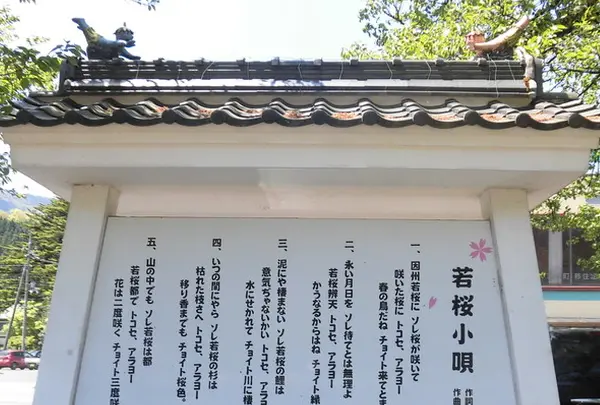 若桜小唄
作詞
作曲
一、因州若桜に ソレ桜が咲いて
咲いた桜に トコセ、アラヨー
春の鳥だね チョイト来てとま
二、永い月日を ソレ待てとは無理よ
若桜弁天 トコセ、アラヨー
かうなるからはね チョイト縁
三、泥にや棲まない ソレ若桜の鯉は
意気ぢゃないかい トコセ、アラヨ
水にせかれて チョイト川に棲
四、いつの間にやら ソレ若桜の杉は
枯れた枝さへ トコセ、アラヨー
移り香までも チョイト桜色。
五、山の中でも ソレ若桜は都
若桜都で トコセ、アラヨー
花は二度咲く チョイト三度咲